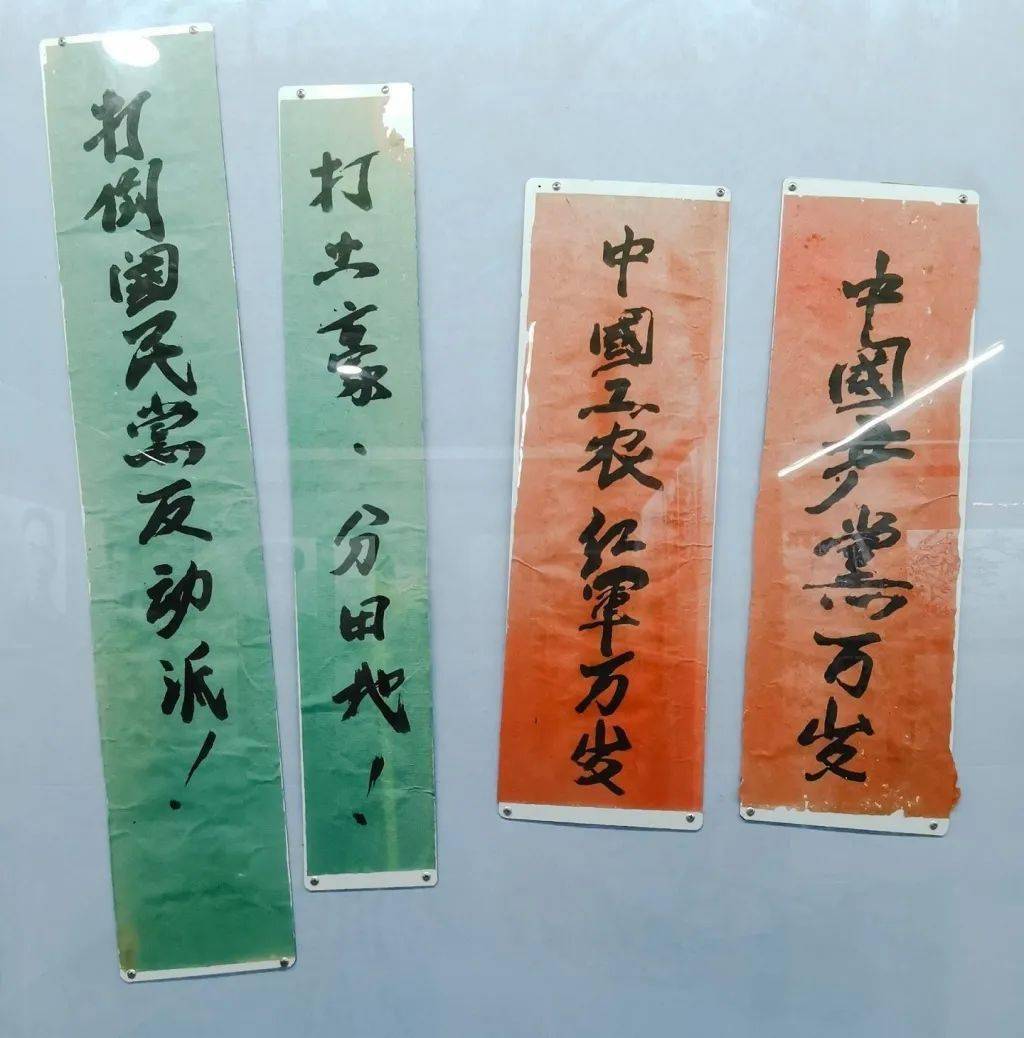 打倒国民党反动派！
打土豪·分田地！
中國工农红軍万岁
中國产党万岁